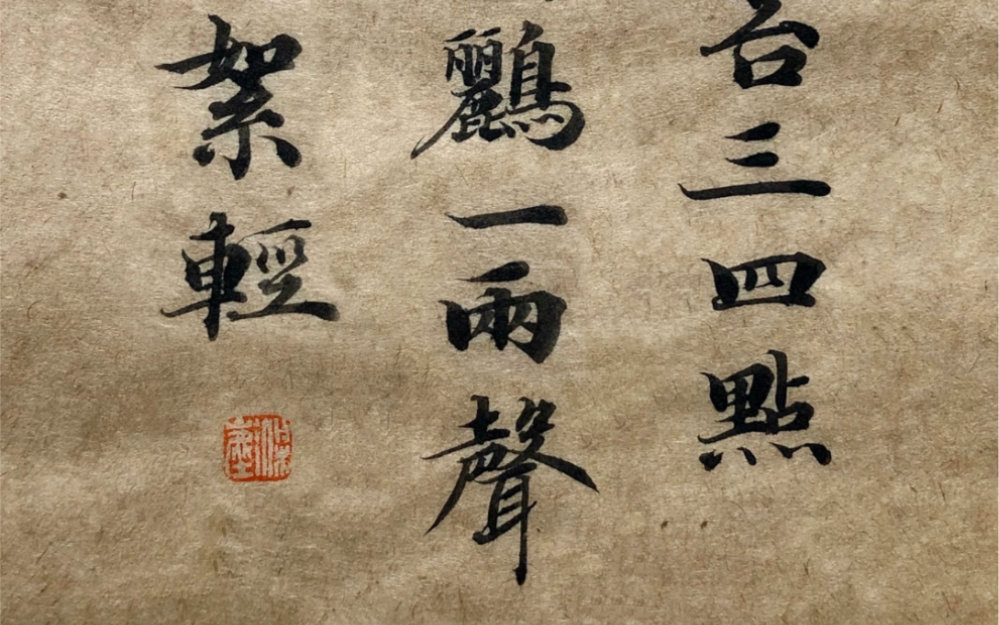 台三四點
鸝一兩聲
絮輕